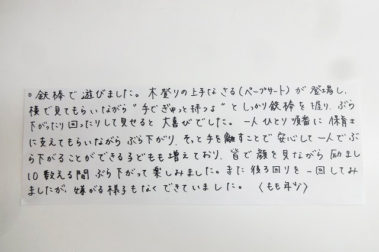 ○ 鉄棒で遊びました。木登りの上手なさる(ペープサート)が登場し、
横で見てもらいながら“手でぎゅっと持つよ”としっかり鉄棒を握り、ぶら
下がったり回ったりして見せると大喜びでした。一人ひとり順番に保育士
に支えてもらいながらぶら下がり、そっと手を離すことで安心して一人でぶ
ら下がることができる子どもも増えており、皆で顔を見ながら励まし
10数える間ぶら下がって楽しみました。また後ろ回りを一回してみ
ましたが、嫌がる様子もなくできていました。〈もも